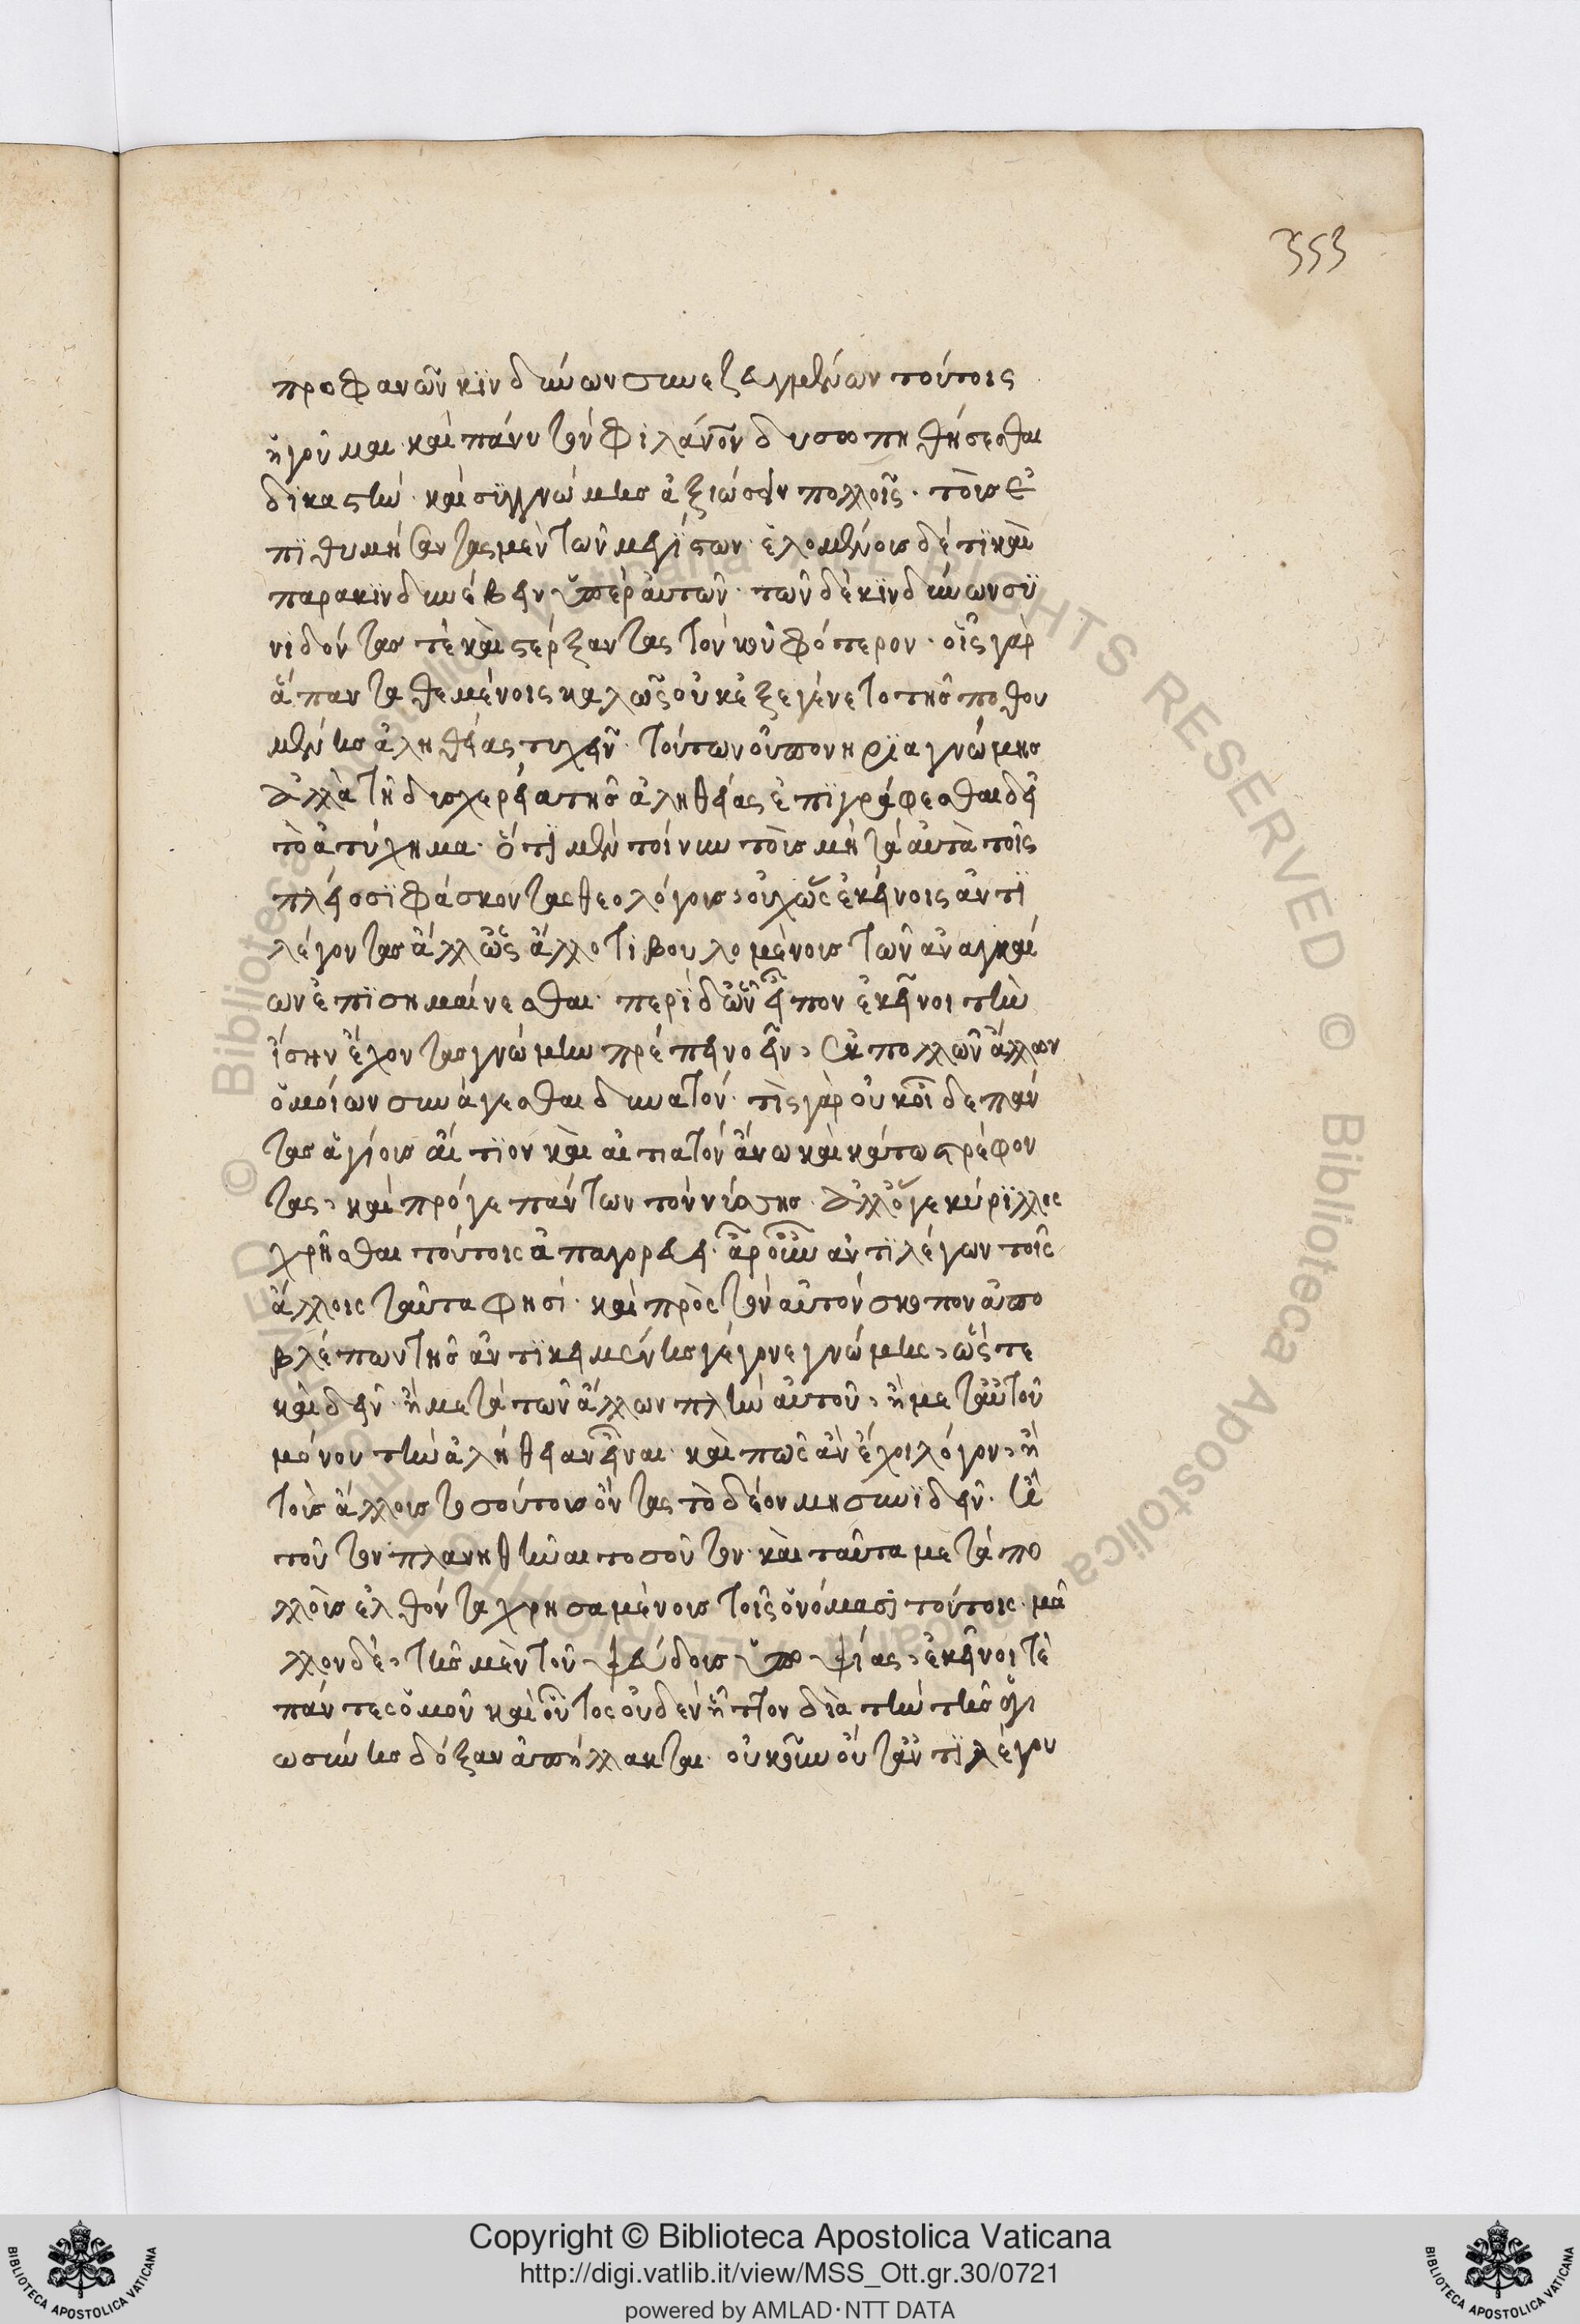 353
προφανῶν κϊνδύνων συνεζευγμένων τούτοις
ἡγοῦμαι καὶ πάνυ τὸν φιλάνον δυσωπηθήσεσθαι
δϊκαστήν· καὶ σϋγγνώμης ἀξιώσειν πολλοῖς· τοὺς ἐ
πϊθυμήσαντας μὲν τῶν μεγίστων· ἑλομένους δέ τϊ καὶ
παρακϊνδυνεύειν ὑπὲρ αὐτῶν· τῶν δὲ κϊνδύνων συ
νιδόντας τὲ καὶ στέρξαντας τὸν κουφότερον· οἷς γὰρ
ἅπαντα θεμένοις καλῶς οὐκ ἐξεγένετο τῆς ποθου
μένης ἀληθείας τυχεῖν· τούτων οὐ πονηρϊα γνώμης
ἀλλὰ τῇ δυσχερεία τῆς ἀληθείας ἐπϊγράφεσθαι δεῖ
τὸ ἀτύχημα· ὅτϊ μὲν τοίνυν τοὺς μὴ τὰ αὐτὰ τοῖς
πλείοσϊ φάσκοντας θεολόγους, οὐχ ὡς ἐκείνοις ἀντϊ
λέγοντας ἀλλ' ὡς ἄλλο τι βουλομένους τῶν ἀναγκαί
ων ἐπϊσημαίνεσθαι· περὶ δ' ὧν εἶπον ἐκεῖνοι τὴν
ἴσην ἔχοντας γνώμην πρέπει νοεῖν, ἐκ πολλῶν ἄλλων
ὁμοίων συνάγεσθαι δυνατόν· τὶς γὰρ οὐκ οἶδε πάν
τας ἁγίους αἴτϊον καὶ αἰτιατὸν ἄνω καὶ κάτω στρέφον
τας, καὶ πρό γε πάντων τὸν νύσσης· ἀλλ' ὅγε κύρϊλλος
χρῆσθαι τούτοις ἀπαγορεύει· ἆρ' οὖν ἀντϊλέγων τοῖς
ἄλλοις ταῦτα φησί· καὶ πρὸς τὸν αὐτὸν σκοπὸν ἀπο
βλέπων τῆς ἀντϊκειμένης γέγονε γνώμης, ὥστε
καὶ δεῖν ἢ μετὰ τῶν ἄλλων πλὴν αὐτοῦ, ἢ μετ' αὐτοῦ
μόνου τὴν ἀλήθειαν εἶναι· καὶ πῶς ἂν ἔχοι λόγον, ἢ
τοὺς ἄλλους τοσούτους ὄντας τὸ δέον μὴ συνϊδεῖν· ἢ
τοῦτον πλανηθῆναι τοσοῦτον· καὶ ταῦτα μετὰ πο
λλοὺς ἐλθόντα χρησαμένους τοῖς ὀνόμασϊ τούτοις· μᾶ
λλον δὲ, τῆς μὲν τοῦ ψεύδους ὑποψίας, ἐκεῖνοί τὲ
πάντες ὁμοῦ καὶ οὗτος οὐδὲν ἧττον διὰ τὴν τῆς ἁγι
ωσύνης δόξαν ἀπήλλακται· οὐκοῦν οὔτ' ἀντϊλέγου